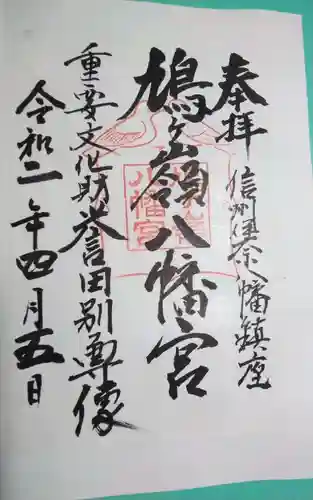 奉拝
信州伊奈八幡鎮座
鳩ヶ嶺八幡宮
重要文化財誉田別尊像
令和二年四月五日
八幡宮